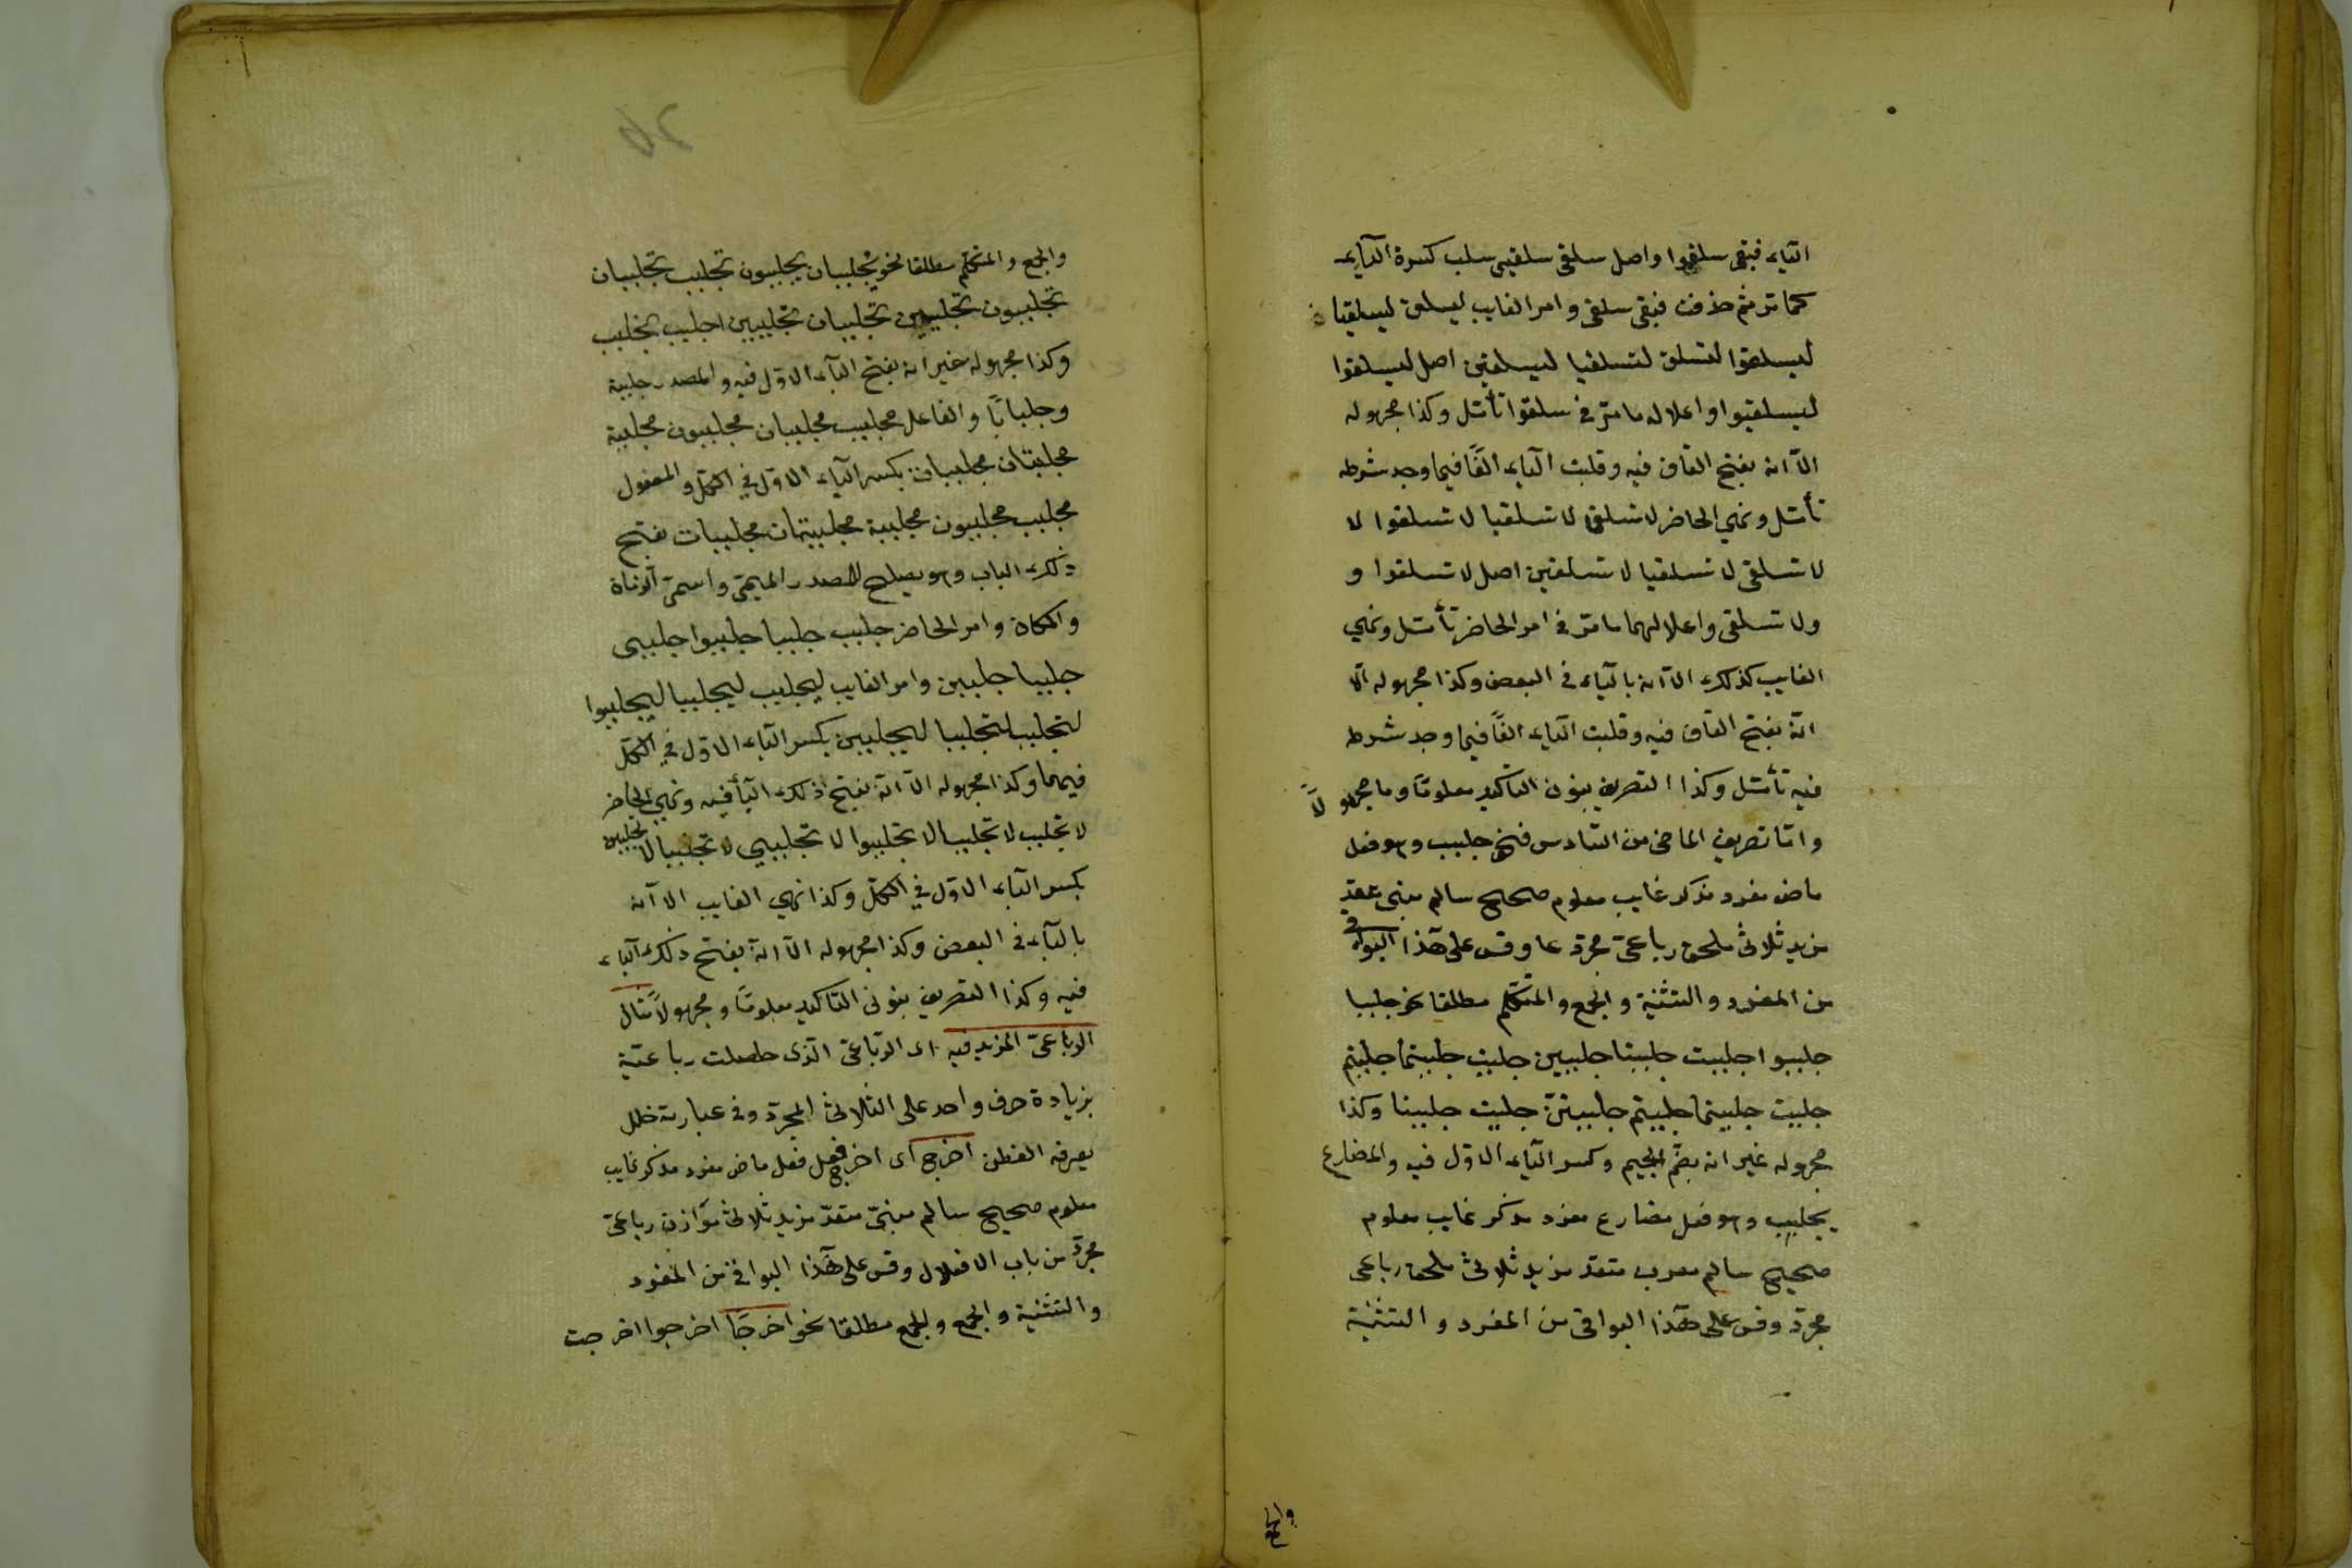 الياء فبقى سلقوا واصل سلقى سلقيى سلب كسرة الياء
كما تر ثم حذفت فبقى سلقى وامر الغايب ليسلق ليسلقيا
ليسلقوا لتسلق لتسلقيا ليسلقين اصل ليسلقوا
ليسلقيوا واعلاله ما مرّ فى سلقوا تأمّل وكذا مجهوله
الاّ انه بفتح القاف فيه وقلبت الياء الفًا فيما وجد شرطه
تأمّل ونهي الحاضر لا تسلق لا تسلقيا لا تسلقوا لا
لا تسلقى لا تسلقيا لا تسلقين اصل لا تسلقوا و
ولا تسلقى واعلالهما ما مرّ فى امر الحاضر تأمّل ونهي
الغايب كذلك الاّ انه بالياء فى البعض وكذا مجهوله الاّ
انّه بفتح القاف فيه وقلبت الياء الفًا فيما وجد شرطه
فيه تأمّل وكذا التصريف بنون التأكيد معلومًا وما مجهولاً
وامّا تصريف الماضى من السّادس فنحو جلبب وهو فعل
ماض مفرد مذكر غايب معلوم صحيح سالم مبنى متعدّ
مزيد ثلاثى ملحق رباعىّ مجرّد عا وقس على هذا البواقى
من المفرد والتثنية والجمع والمتكلّم مطلقا نحو جلببا
جلببوا جلببت جلببتا جلببين جلببت جلببتما جلببتم
جلببت جلببتما جلببتم جلببتنّ جلببت جلببنا وكذا
مجهوله غير انه بضمّ الجيم وكسر الباء الاوّل فيه والمضارع
يجلبب وهو فعل مضارع مفرد مذكر غايب معلوم
صحيح سالم معرب متعدّ مزيد ثلاثى ملحق رباعى
مجرّد وقس على هذا البواقى من المفرد والتثنية
والجمع
والجمع والمتكلّم مطلقا نحو يجلببان يجلببون تجلبب تجلببان
تجلببون تجلببين تجلببان تجلببين اجلبب نجلبب
وكذا مجهوله غير انه بفتح الباء الاوّل فيه والمصدر جلببة
وجلبابًا والفاعل مجلبب مجلببان مجلببون مجلببة
مجلببتان مجلببات بكسر الباء الاوّل فى الكلّ والمفعول
مجلبب مجلببون مجلببة مجلببتان مجلببات بفتح
ذلك الباب وهو يصلح للمصدر الميمىّ واسمىّ الزمان
والمكان وامر الحاضر جلبب جلببا جلببوا جلببى
جلببا جلببين وامر الغايب ليجلبب ليجلببا ليجلببوا
لتجلبب لتجلببا ليجلببين بكسر الباء الاوّل فى الكلّ
فيهما وكذا مجهوله الاّ انّه بفتح ذلك الباء فيه ونهي الحاضر
لا تجلبب لا تجلببا لا تجلببوا لا تجلببى لا تجلببا لا تجلببين
بكسر الباء الاوّل فى الكلّ وكذا نهي الغايب الا انه
بالياء فى البعض وكذا مجهوله الاّ انّه بفتح ذلك الباء
فيه وكذا التصريف بنونى التّأكيد معلومًا ومجهولاً مثال
الرباعىّ المزيد فيه اى الرّباعىّ الّذى حصلت رباعيّة
بزيادة حرف واحد على الثلاثى المجرّد وفى عبارته خلل
يعرفه الفطن اخرج اى اخرج فعل فعل ماض مفرد مذكر غايب
معلوم صحيح سالم مبنىّ متعدّ مزيد ثلاثى موازن رباعىّ
مجرّد من باب الافعلال وقس على هذا البواقى من المفرد
والتثنية والجمع والجمع مطلقا نحو اخرجا اخرجوا اخرجت